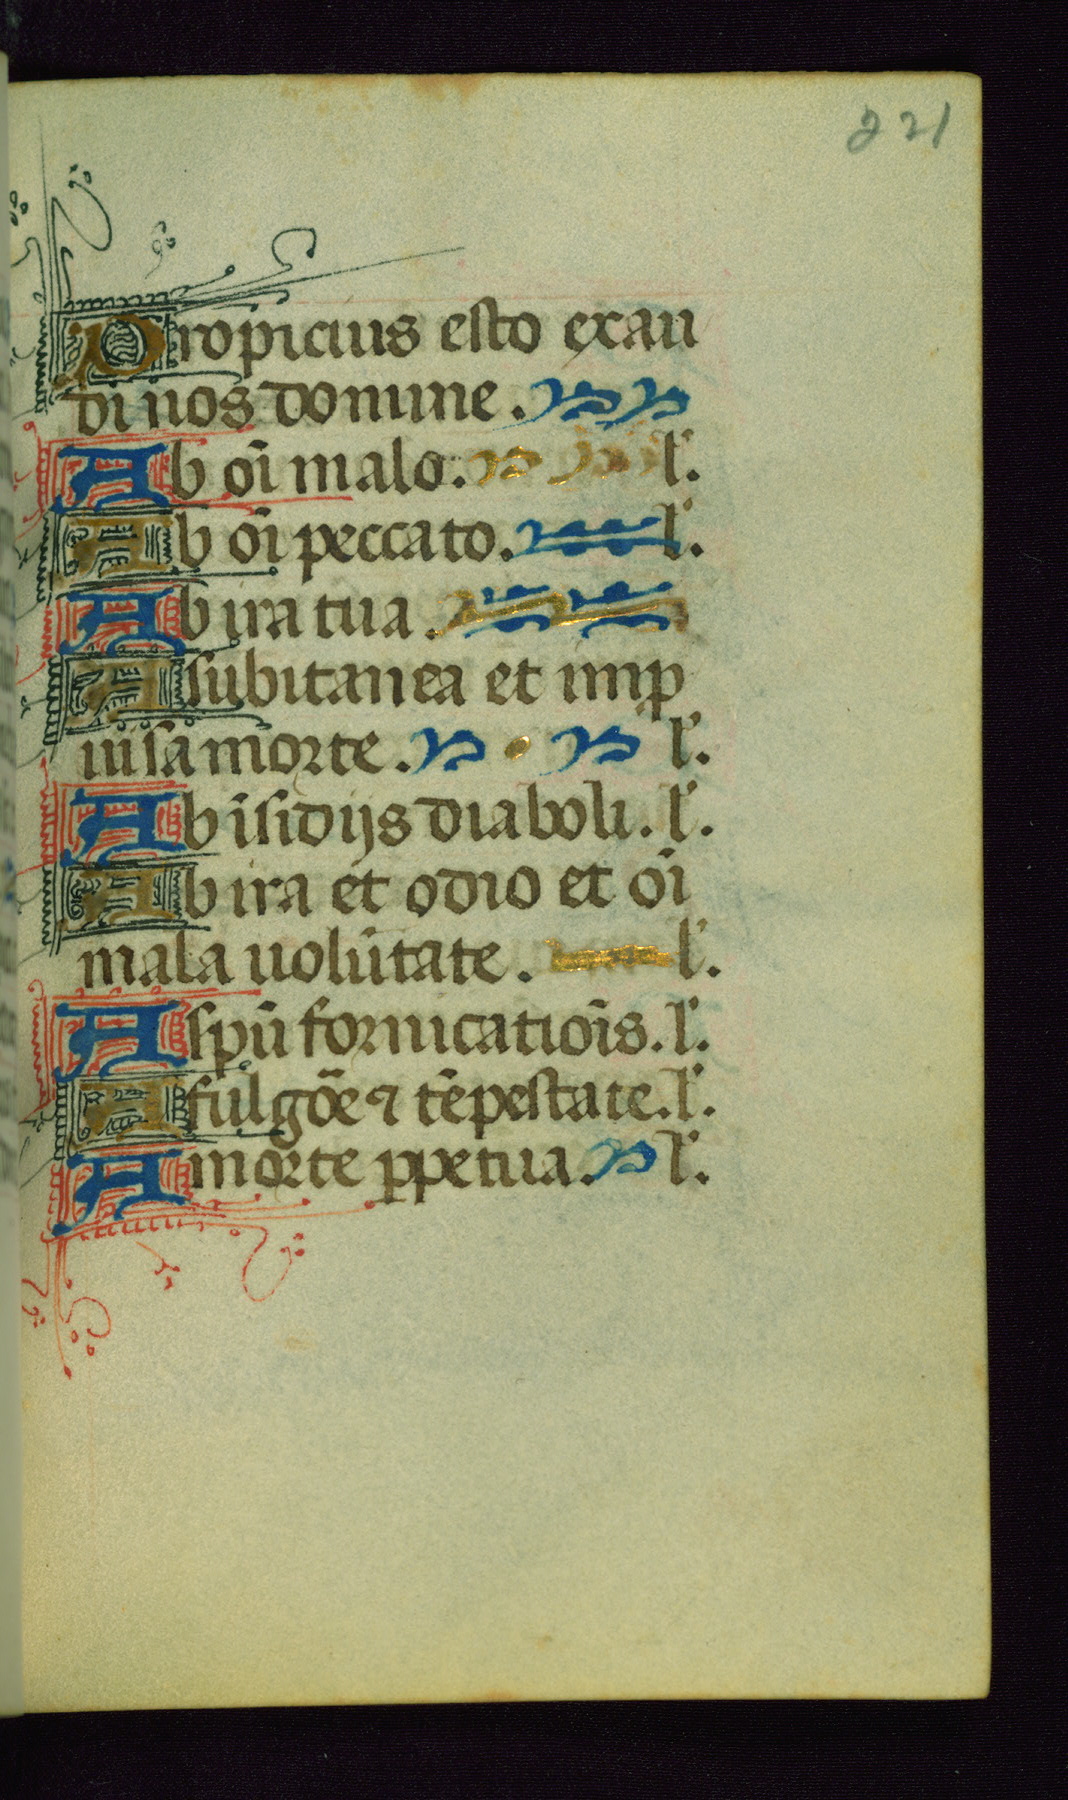 221
Propicius esto exau
di nos domine.
Ab oı̄ malo. l'.
Ab oı̄ peccato. l'.
Ab ira tua.
A subitanea et imp
uisa morte. l'.
Ab īsidijs diaboli. l'.
Ab ira et odio et oı̄
mala uolūtate. l'.
A spū fornicatiōis. l'.
A fulgōe ⁊ tēpestate. l'.
A morte ꝑpetua. l'.